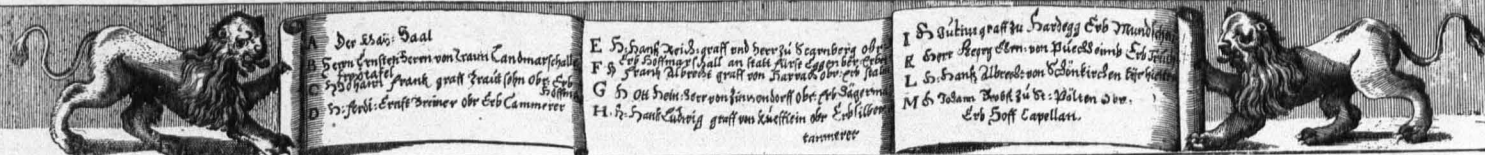 A Der Kay: Saal
B Herrn Ernsten Herrn von Traun Landmarschalls
C H Johann Frantz graff Trautsohn obr. Erb
Hoffm
D H. ferdi: Ernst Breiner obr Erb Cammerer
E H. Hanß Reich: graff und heer zu Starnberg obr
Erb Hoffmarschall an statt fürst Eggenberg
F H Frantz Albrecht graff von Harrach obr. erb stall
G H Ott Hein: Herr von Zinzendorff obr: Erb Jägerm
H H. Hanß Ludwig graff von Kueffstein obr Erbsilber
cammerer
I H Julius graff zu Hardegg Erb Mundschen
K Herr Georg Ehrn: von Puechhaimb Erb
L H. Hanß Albrecht von Schönkirchen Erb
M H Johann Probst zu St: Pölten Obr.
Erb Hoff Capellan.